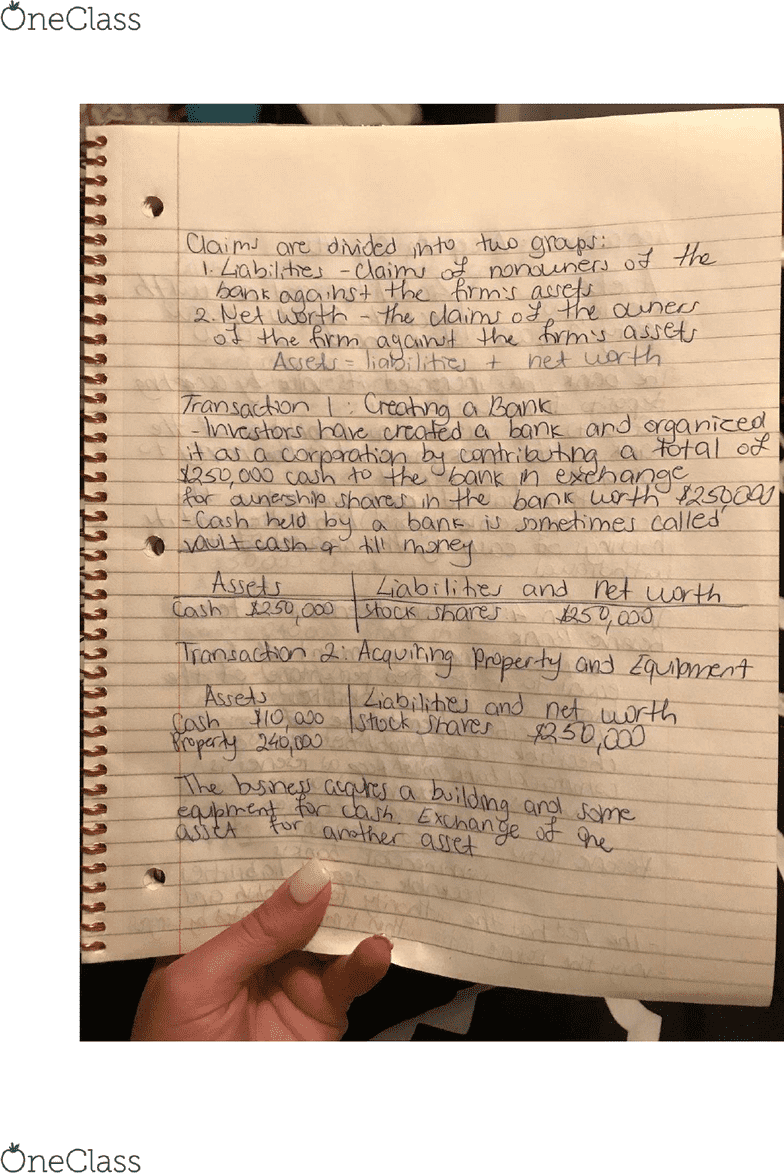 OneClass
Claims are divided into two groups:
1. Liabilities - claims of nonowners of the
bank against the firm's assets
2. Net worth - the claims of the owners
of the firm against the firm's assets
Assets = liabilities + net worth
Transaction 1: Creating a Bank
- Investors have created a bank and organiced
it as a corporation by contributing a total of
$250,000 cash to the bank in exchange
for ownership shares in the bank worth $250,000
- Cash held by a bank is sometimes called
vault cash or till money
Assets Liabilities and net worth
Cash $250,000 stock shares $250,000
Transaction 2: Acquiring Property and Equipment
Assets Liabilities and net worth
Cash $10,000 stock shares $250,000
Property 240,000
The business acquires a building and some
equipment for cash. Exchange of one
asset for another asset
OneClass